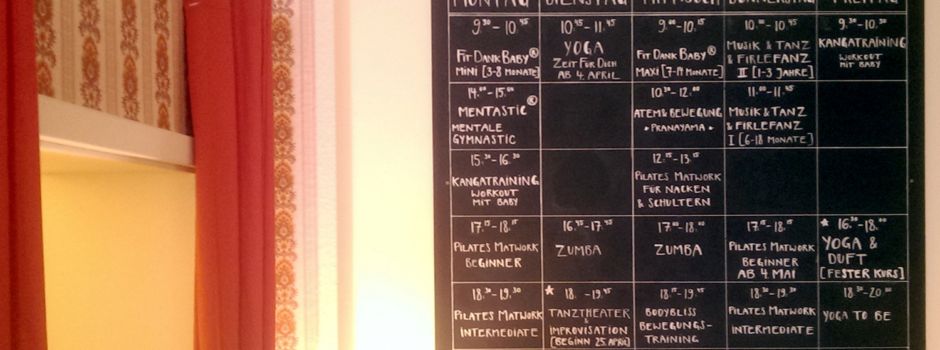 MONTAG DIENSTAG MITTWOCH DONNERSTAG FREITAG
9.30 - 10.45
FIT DANK BABY®
MINI [3-8 MONATE]
10.45 - 11.45
YOGA
ZEIT FÜR DICH
AB 4. APRIL
9.00 - 10.15
FIT DANK BABY®
MAXI [7-14 MONATE]
10.00 - 10.45
MUSIK & TANZ
& FIRLEFANZ
II [1-3 JAHRE]
9.30 - 10.30
KANGATRAINING
WORKOUT
MIT BABY
14.00 - 15.00
MENTASTIC®
MENTALE
GYMNASTIC
10.30 - 12.00
ATEM & BEWEGUNG
• PRANAYAMA •
11.00 - 11.45
MUSIK & TANZ
& FIRLEFANZ
I [6-18 MONATE]
15.30 - 16.30
KANGATRAINING
WORKOUT
MIT BABY
12.15 - 13.15
PILATES MATWORK
FÜR NACKEN
& SCHULTERN
17.15 - 18.15
PILATES MATWORK
BEGINNER
16.45 - 17.45
ZUMBA
17.00 - 18.00
ZUMBA
17.15 - 18.15
PILATES MATWORK
BEGINNER
AB 4 MAI
* 16.30 - 18.00
YOGA &
DUFT
[FESTER KURS]
18.30 - 19.30
PILATES MATWORK
INTERMEDIATE
* 18. - 19.45
TANZTHEATER
&
IMPROVISATION
[BEGINN 25. APRIL]
18.15 - 19.45
BODYBLISS
BEWEGUNGS-
TRAINING
18.30 - 19.30
PILATES MATWORK
INTERMEDIATE
18.30 - 20.00
YOGA TO BE